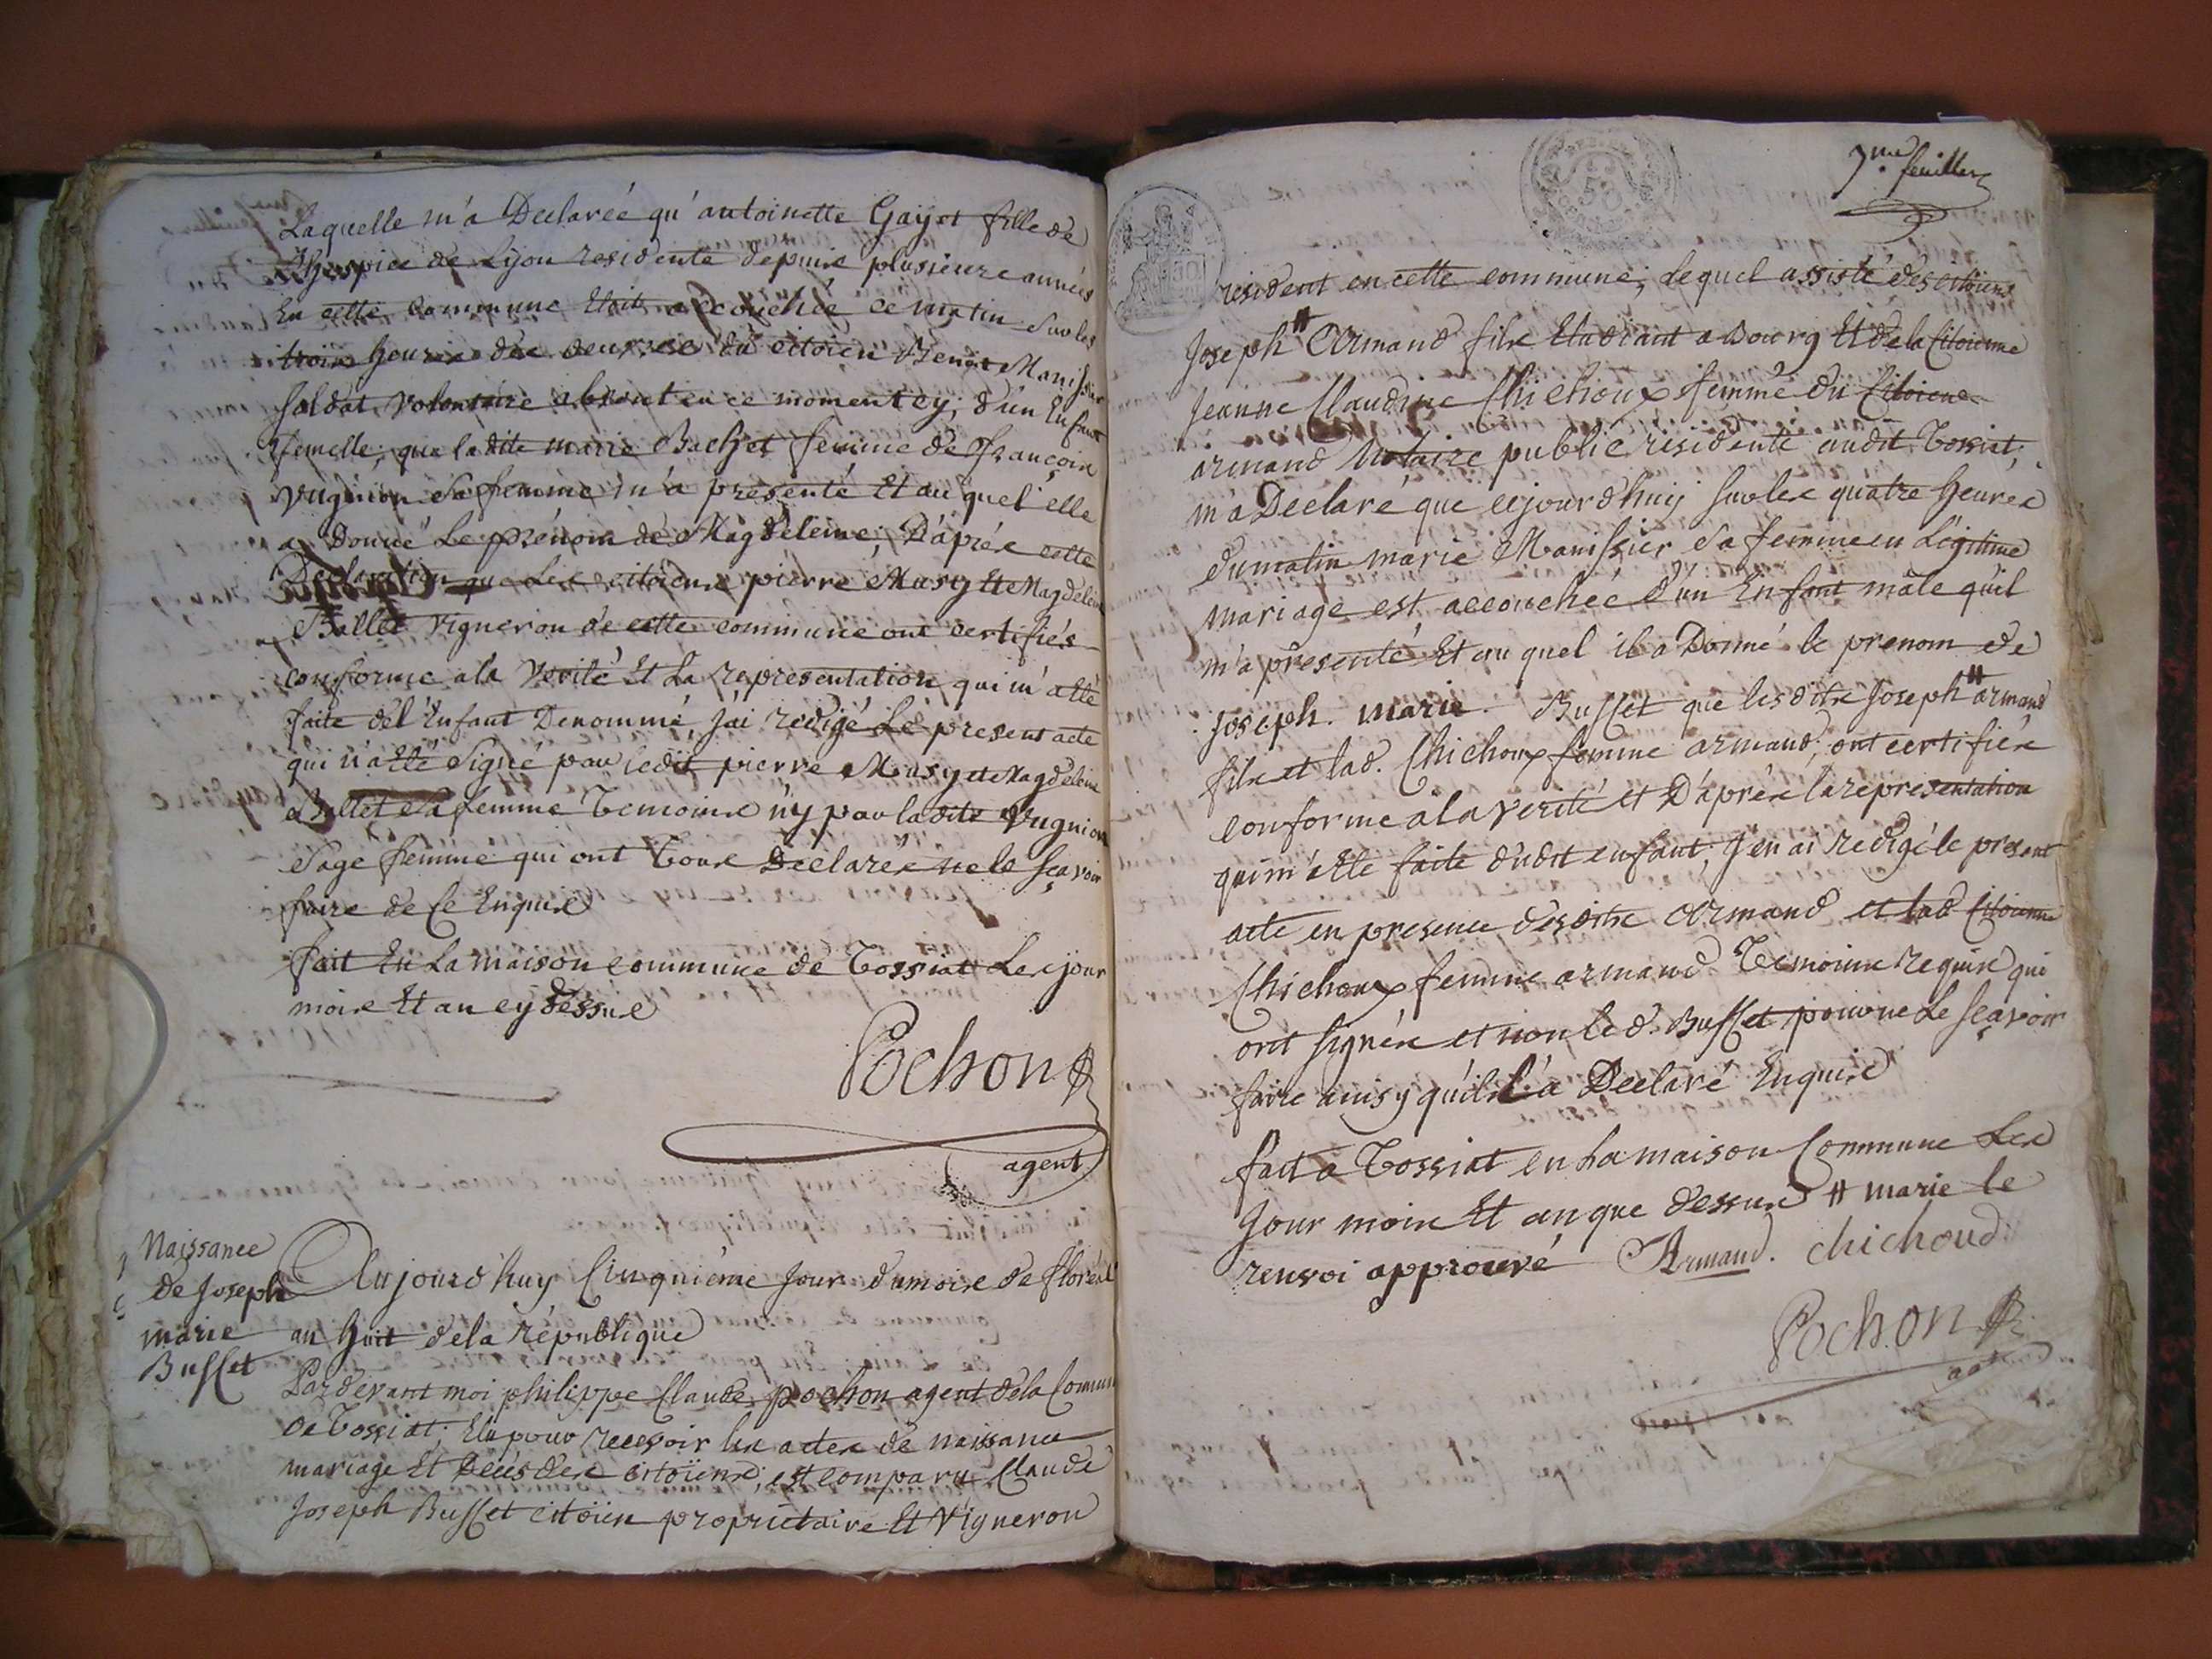 Laquelle m'a Declarée qu'antoinette Gayet fille de
L'hospice de Lijon residente depuis plusieurs années
En cette commune Etoit accouchée ce matin sur les
trois heures des oeuvres du citoien Benoit Manissier
soldat volontaire absent en ce moment cy, d'un Enfant
femelle, que ladite marie Bachet femme de françois
Vugnion sa femme m'a presenté Et au quel elle
a Donné Le prénom de Magdeleine; D'après cette
Declaration que Les citoiens pierre Musy Et Magdeleine
Ballet Vigneron de cette commune ont certifiés
conforme a la Verité Et La representation qui m'a Eté
faite de l'Enfant Denommé, j'ai redigé Le present acte
qui n'a Eté signé par ledit pierre Musy et Magdeleine
Ballet sa femme Temoins n'y par ladite Vugnion
sage femme qui ont Tous Declarés ne le sçavoir
faire de ce Enquis
fait En La maison commune de Tossiat Les jour
mois Et an cy dessus
Pochon
agent
Naissance
de Joseph
marie
Busset
Aujourd'huy Cinquième Jour du mois de floréal
an huit de la république
Pardevant moi philippe Claude pochon agent de la Commune
de Tossiat; Elu pour recevoir les actes de naissance
mariage Et Décés des citoiens, est comparu Claude
Joseph Busset citoien propriétaire Et Vigneron
7me feuillet
résident en cette commune; lequel assisté des citoiens
Joseph # Armand fils Etudiant a Bourg Et de la Citoienne
Jeanne Claudine Chichoux femme du Citoien
armand Notaire public résidente audit Tossiat,
m'a Declaré que cejourd'huy sur les quatre heures
du matin marie Manissier sa femme en Légitime
mariage est accouchée d'un Enfant mâle qu'il
m'a presenté Et au quel il a Donné le prenom de
Joseph. marie. Busset que lesdits Joseph # armand
fils et lad. Chichoux femme armand, ont certifiés
conforme a la verité et D'après la representation
qui m'a Eté faite dudit enfant, j'en ai redigé le present
acte en presence desdits Armand et lad Citoienne
Chichoux femme armand Temoins requis qui
ont signés et non led. Busset pour ne Le sçavoir
faire ainsy qu'il L'a Declaré Enquis
fait a Tossiat en La maison Commune Les
Jour mois Et an que dessus # marie le
renvoi approuvé Armand. Chichoud
Pochon
agt